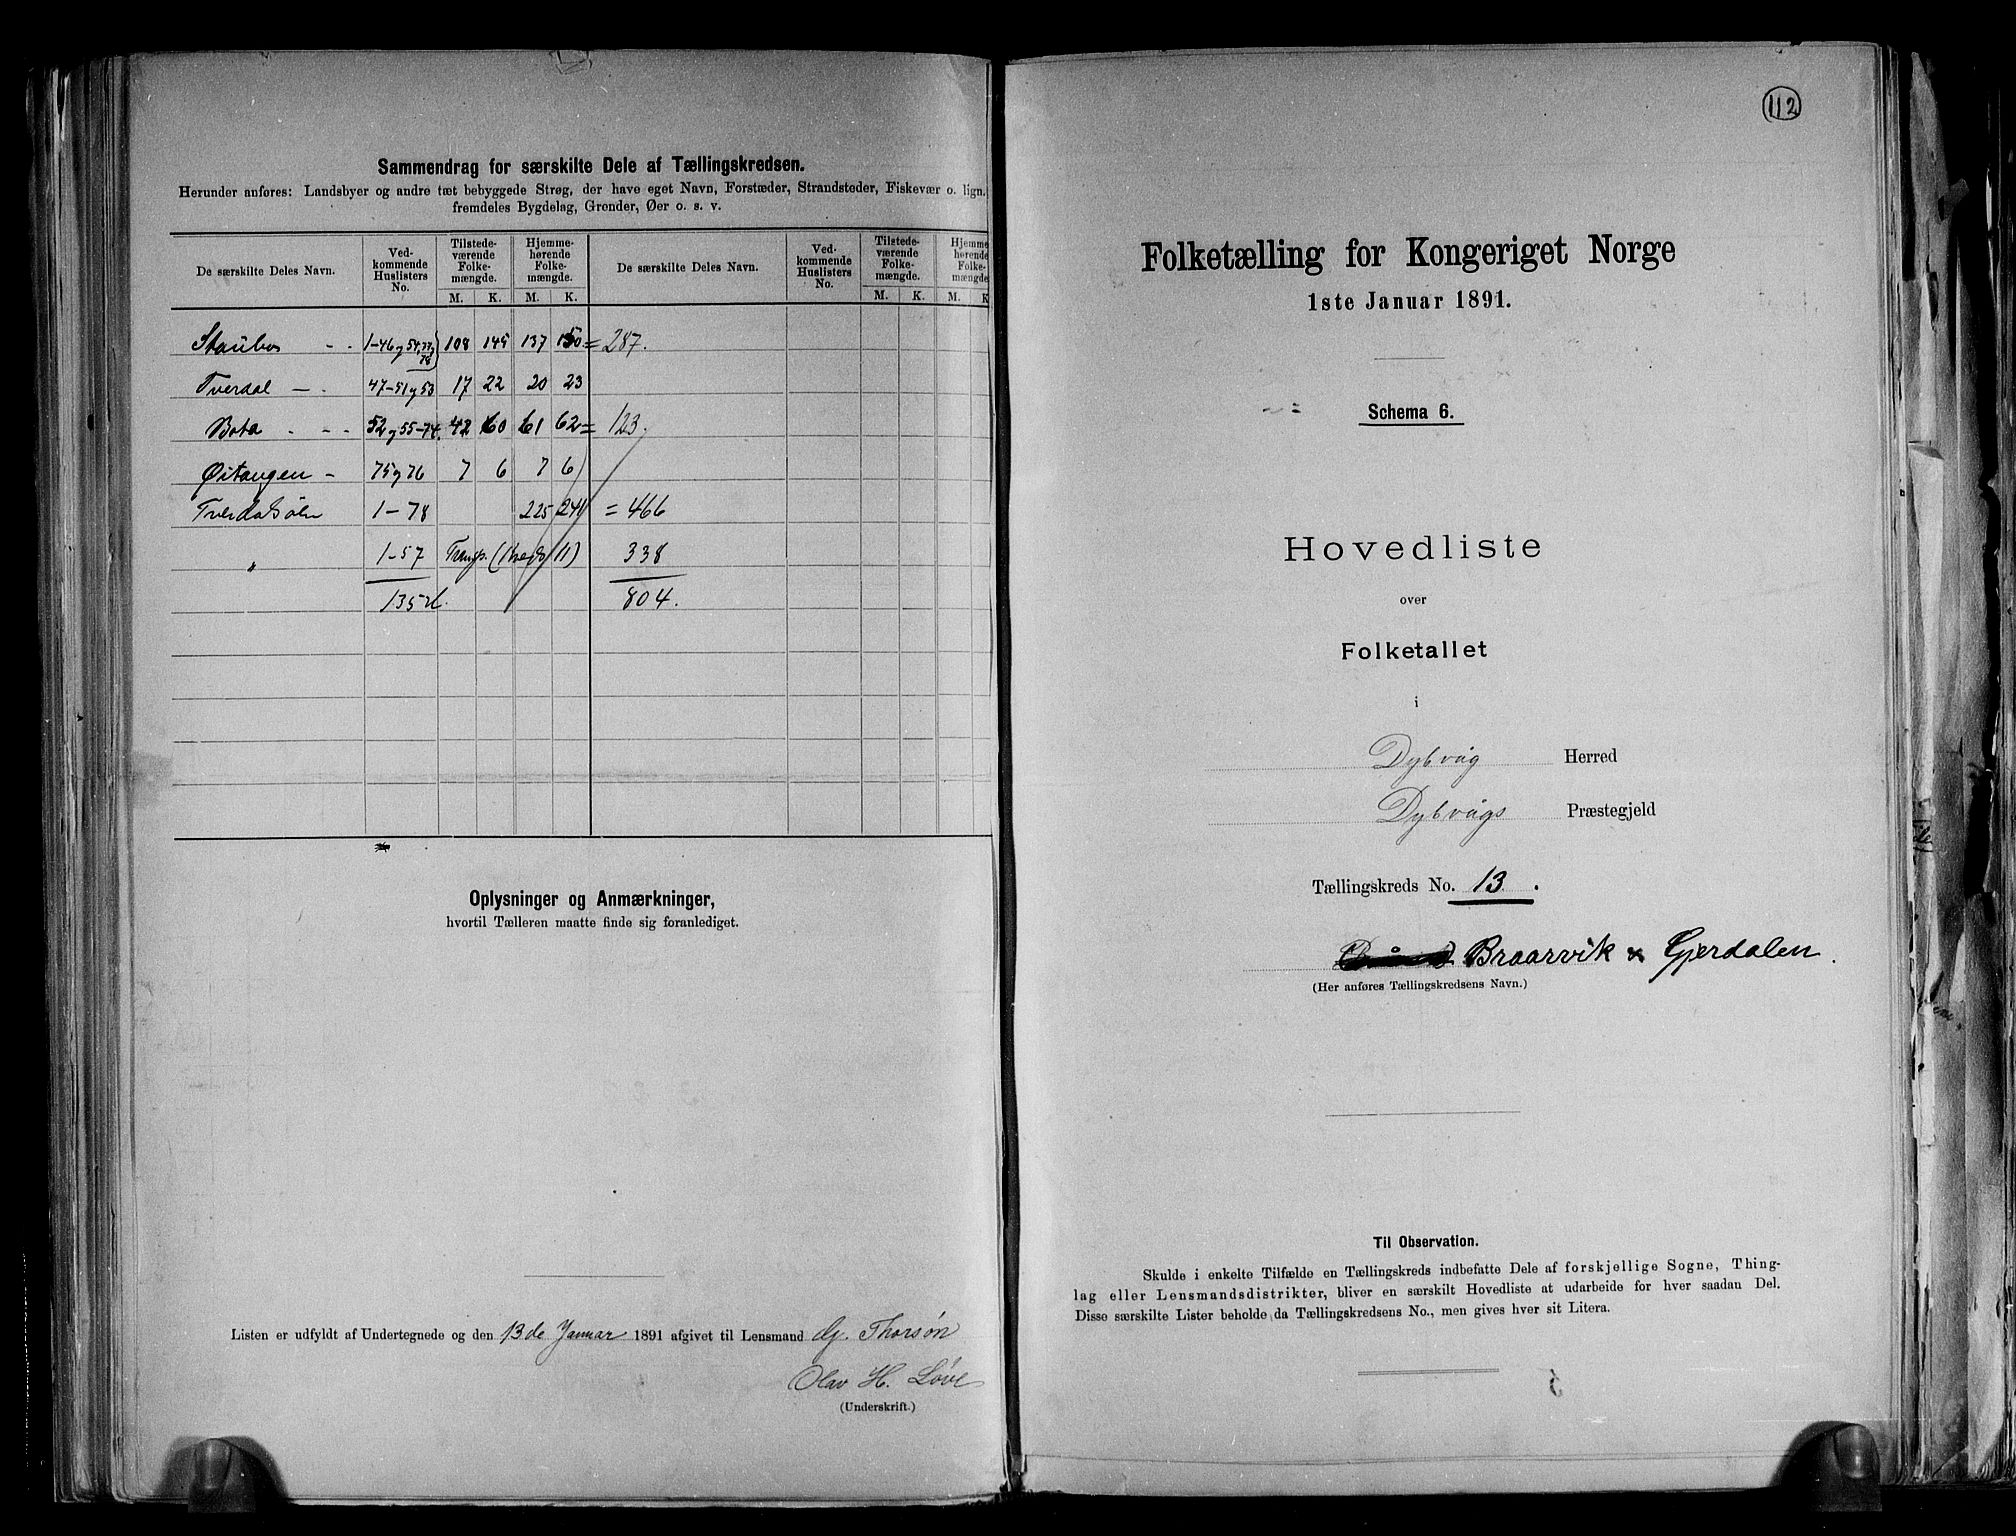 Sammendrag for særskilte Dele af Tællingskredsen.
Herunder anføres: Landsbyer og andre tæt bebyggede Strøg, der have eget Navn, Forstæder, Strandsteder, Fiskevær o. lign.
fremdeles Bygdelag, Grender, Øer o. s. v.
De særskilte Deles Navn. Ved-kommende Huslisters No. Tilstede-værende Folke-mængde. Hjemme-hørende Folke-mængde. De særskilte Deles Navn. Ved-kommende Huslisters No. Tilstede-værende Folke-mængde. Hjemme-hørende Folke-mængde.
M. K. M. K. M. K. M. K.
Staubo - - 1-46 og 54, 77 og 78 108 145 137 150 = 287.
Tverdal - - 47-51 og 53 17 22 20 23
Bota - - - 52 og 55-74. 42 60 61 62 = 123.
Øitangen - 75 og 76 7 6 7 6
Tverdalsøen 1-78 225 241 = 466
" 1-57 Transp. (Kreds 11) 338
135 804.
Oplysninger og Anmærkninger,
hvortil Tælleren maatte finde sig foranlediget.
Listen er udfyldt af Undertegnede og den 13de Januar 1891 afgivet til Lensmand Gj. Thorsøn
Olav H. Løve
(Underskrift.)
112
Folketælling for Kongeriget Norge
1ste Januar 1891.
Schema 6.
Hovedliste
over
Folketallet
i
Dybvåg Herred
Dybvågs Præstegjeld
Tællingskreds No. 13.
Braarvik & Gjerdalen.
(Her anføres Tællingskredsens Navn.)
Til Observation.
Skulde i enkelte Tilfælde en Tællingskreds indbefatte Dele af forskjellige Sogne, Thing-
lag eller Lensmandsdistrikter, bliver en særskilt Hovedliste at udarbeide for hver saadan Del.
Disse særskilte Lister beholde da Tællingskredsens No., men gives hver sit Litera.